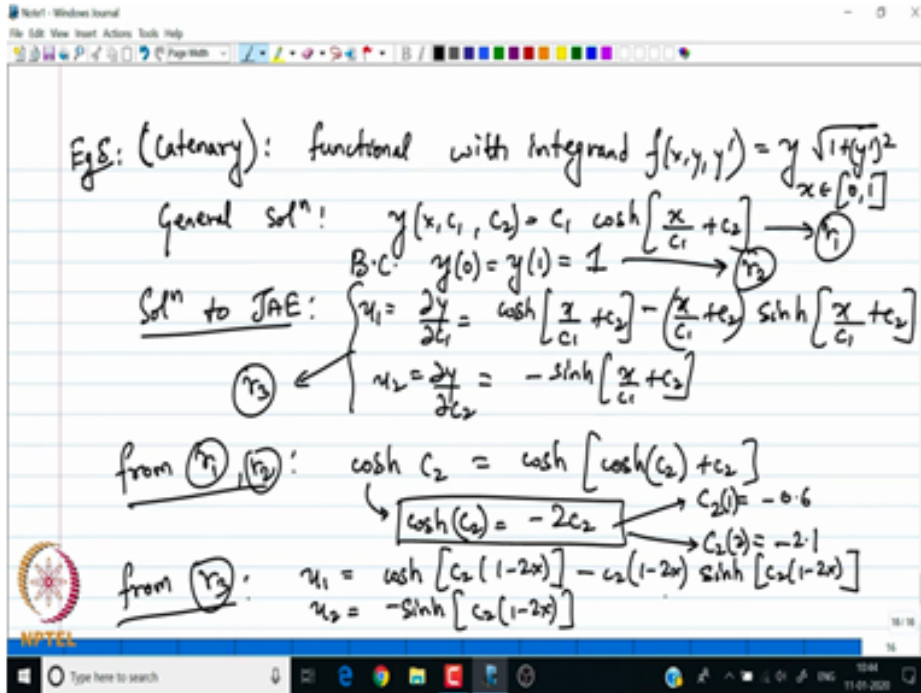 Note1 - Windows Journal
File Edit View Insert Actions Tools Help
Page Width
Eg5: (Catenary): functional with integrand f(x,y,y') = y √1+(y')²
x ∈ [0,1]
General Solⁿ: y(x,c₁,c₂) = c₁ cosh[x/c₁ + c₂] → r₁
B.C. y(0) = y(1) = 1 → r₂
Solⁿ to JAE: { u₁ = ∂y/∂c₁ = cosh[x/c₁ + c₂] - (x/c₁ + c₂) sinh[x/c₁ + c₂]
r₃ ← u₂ = ∂y/∂c₂ = - sinh[x/c₁ + c₂]
from r₁, r₂: cosh c₂ = cosh[cosh(c₂) + c₂]
→ cosh(c₂) = -2c₂ → c₂(1) = -0.6
→ c₂(2) = -2.1
from r₃: u₁ = cosh[c₂(1-2x)] - c₂(1-2x) sinh[c₂(1-2x)]
u₂ = -sinh[c₂(1-2x)]
NPTEL
16/16
16
Type here to search
ENG
10:44
11-01-2020